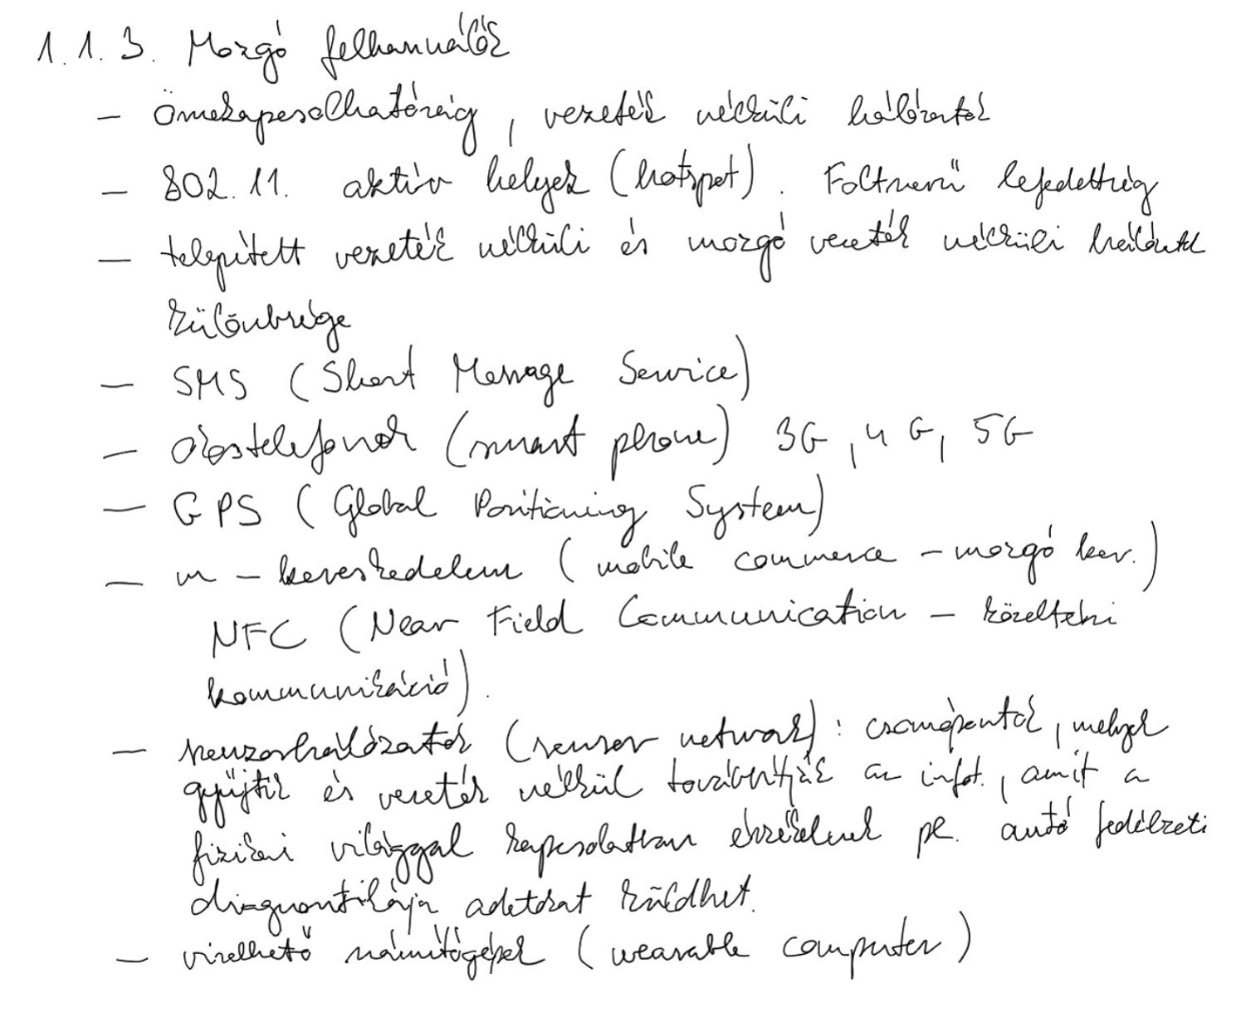 1.1.3. Mozgó felhasználók
- Összekapcsolhatóság, vezeték nélküli hálózatok
- 802.11. aktív helyek (hotspot). Foltszerű lefedettség
- telepített vezeték nélküli és mozgó vezeték nélküli hálózatok
különbsége
- SMS (Short Message Service)
- okostelefonok (smart phone) 3G, 4G, 5G
- GPS (Global Positioning System)
- m-kereskedelem (mobile commerce - mozgó ker.)
NFC (Near Field Communication - közeltéri
kommunikáció).
- szenzorhálózatok (sensor network): csomópontok, melyek
gyűjtik és vezeték nélkül továbbítják az infot., amit a
fizikai világgal kapcsolatban észlelnek pl. autó fedélzeti
diagnosztikája adatokat küldhet.
- viselhető számítógépek (wearable computer)